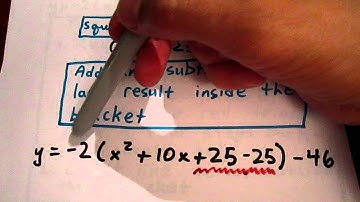 squ
2
Add subt
la result inside the
bracket
y = -2 ( x² + 10x + 25 - 25 ) - 46